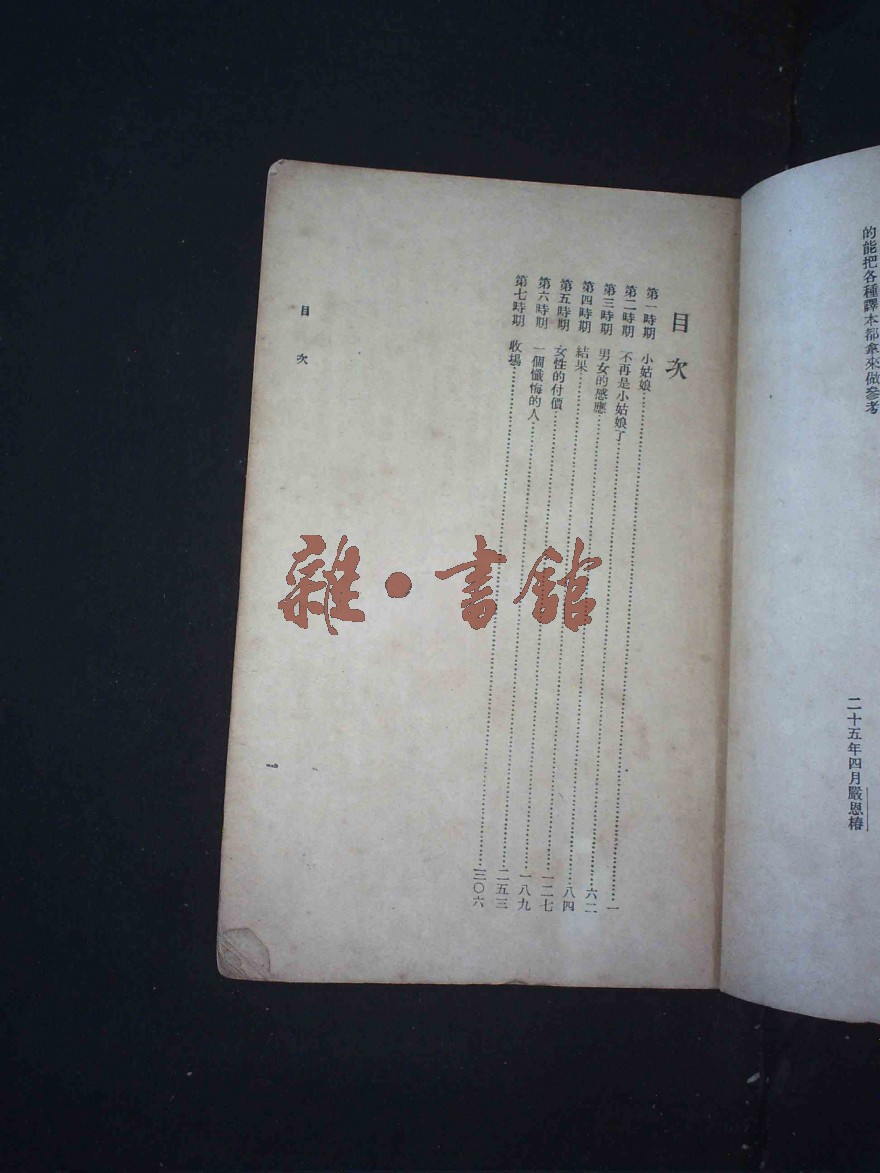 的能把各種譯本都拿來做參考
二十五年四月嚴恩椿
目次
第一時期 小姑娘……一
第二時期 不再是小姑娘了……六二
第三時期 男女的感應……八四
第四時期 結果……一二七
第五時期 女性的付價……一八九
第六時期 一個懺悔的人……二五三
第七時期 收場……三〇六
目次
一
雜·書館